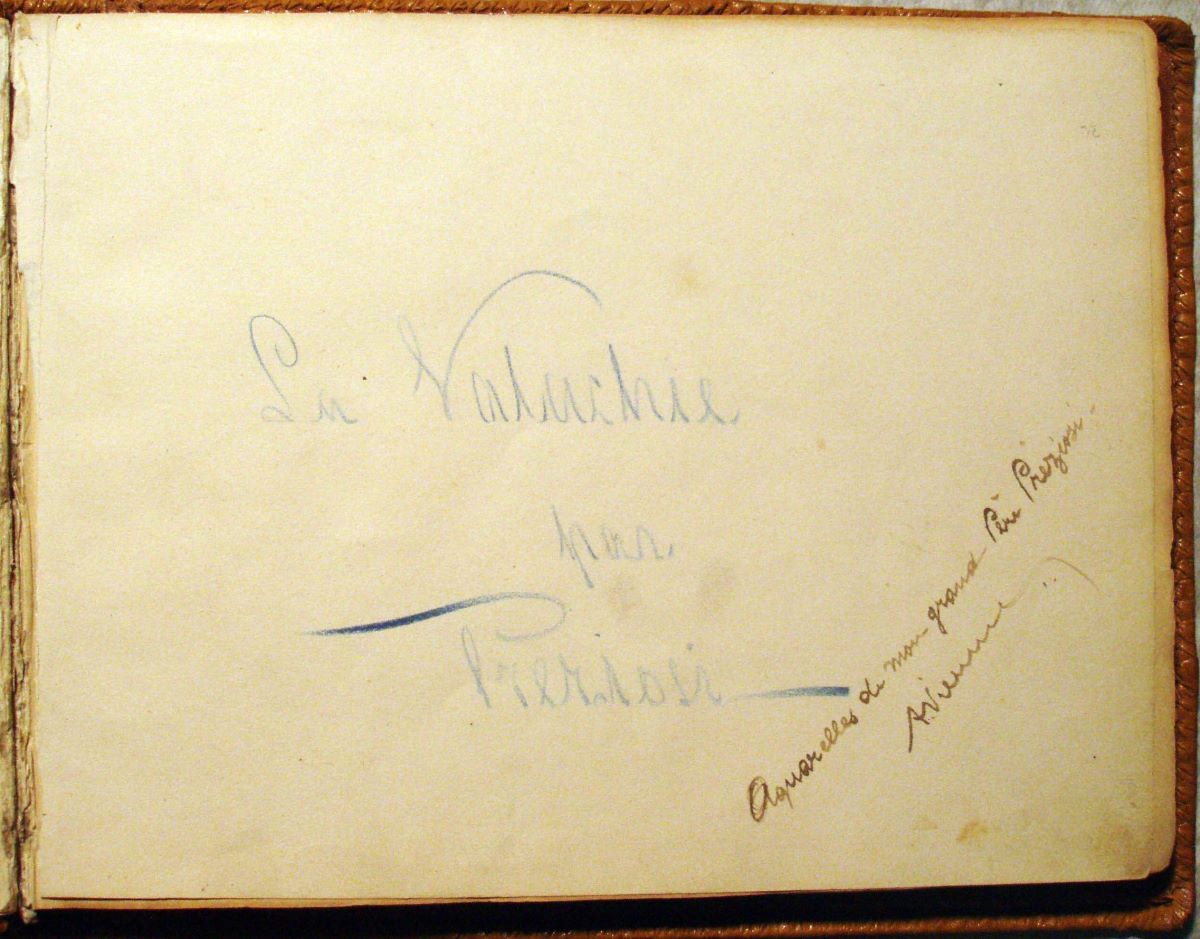 La Valachie
par
Preziosi
Aquarelles de mon grand Père Préziosi